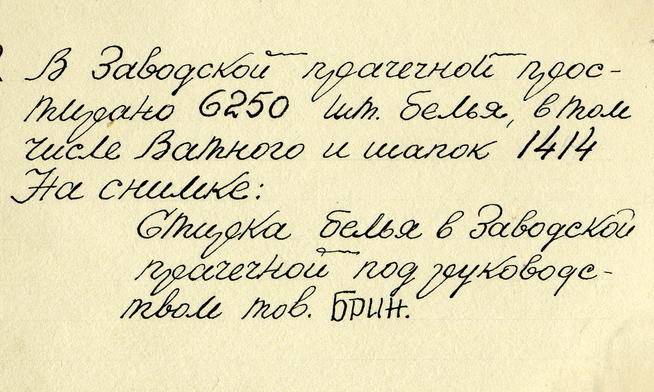 В Заводской прачечной прос-
тирано 6250 шт. белья, в том
числе Ватного и шапок 1414
На снимке:
Стирка белья в Заводской
прачечной под руководс-
твом тов. БРИН.